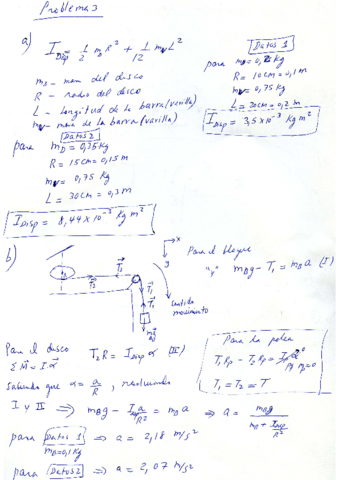 Problema 3
a) I_Disp = 1/2 m_D R² + 1/12 m_v L²
m_D - masa del disco
R - radio del disco
L - longitud de la barra (varilla)
m_v - masa de la barra (varilla)
Datos 1
para
R = 10cm = 0,1m
m_v = 0,75 Kg
I_Disp = 3,5×10⁻³ Kg m²
Datos 2
para m_D = 0,75 Kg
R = 15cm = 0,15m
m_v = 0,75 Kg
L = 30cm = 0,3m
I_DISP = 8,44×10⁻³ Kg m²
b)
x
y
T₂
T₂
T₁
T₁
sentido
movimiento
Para el bloque
"y" m_B g - T₁ = m_B a (I)
Para el disco
ΣM = I α
T₂ R = I_Disp α (II)
Para la polea
T₁ R_p - T₂ R_p =
T₁ = T₂ = T
Sabiendo que α = a/R , resolviendo
I y II ⇒ m_B g - I_Disp a/R² = m_B a ⇒ a = m_B g / (m_B + I_Disp/R²)
para Datos 1 ⇒ a = 2,18 m/s²
m_B = 0,1 Kg
para Datos 2 ⇒ a = 2,07 m/s²